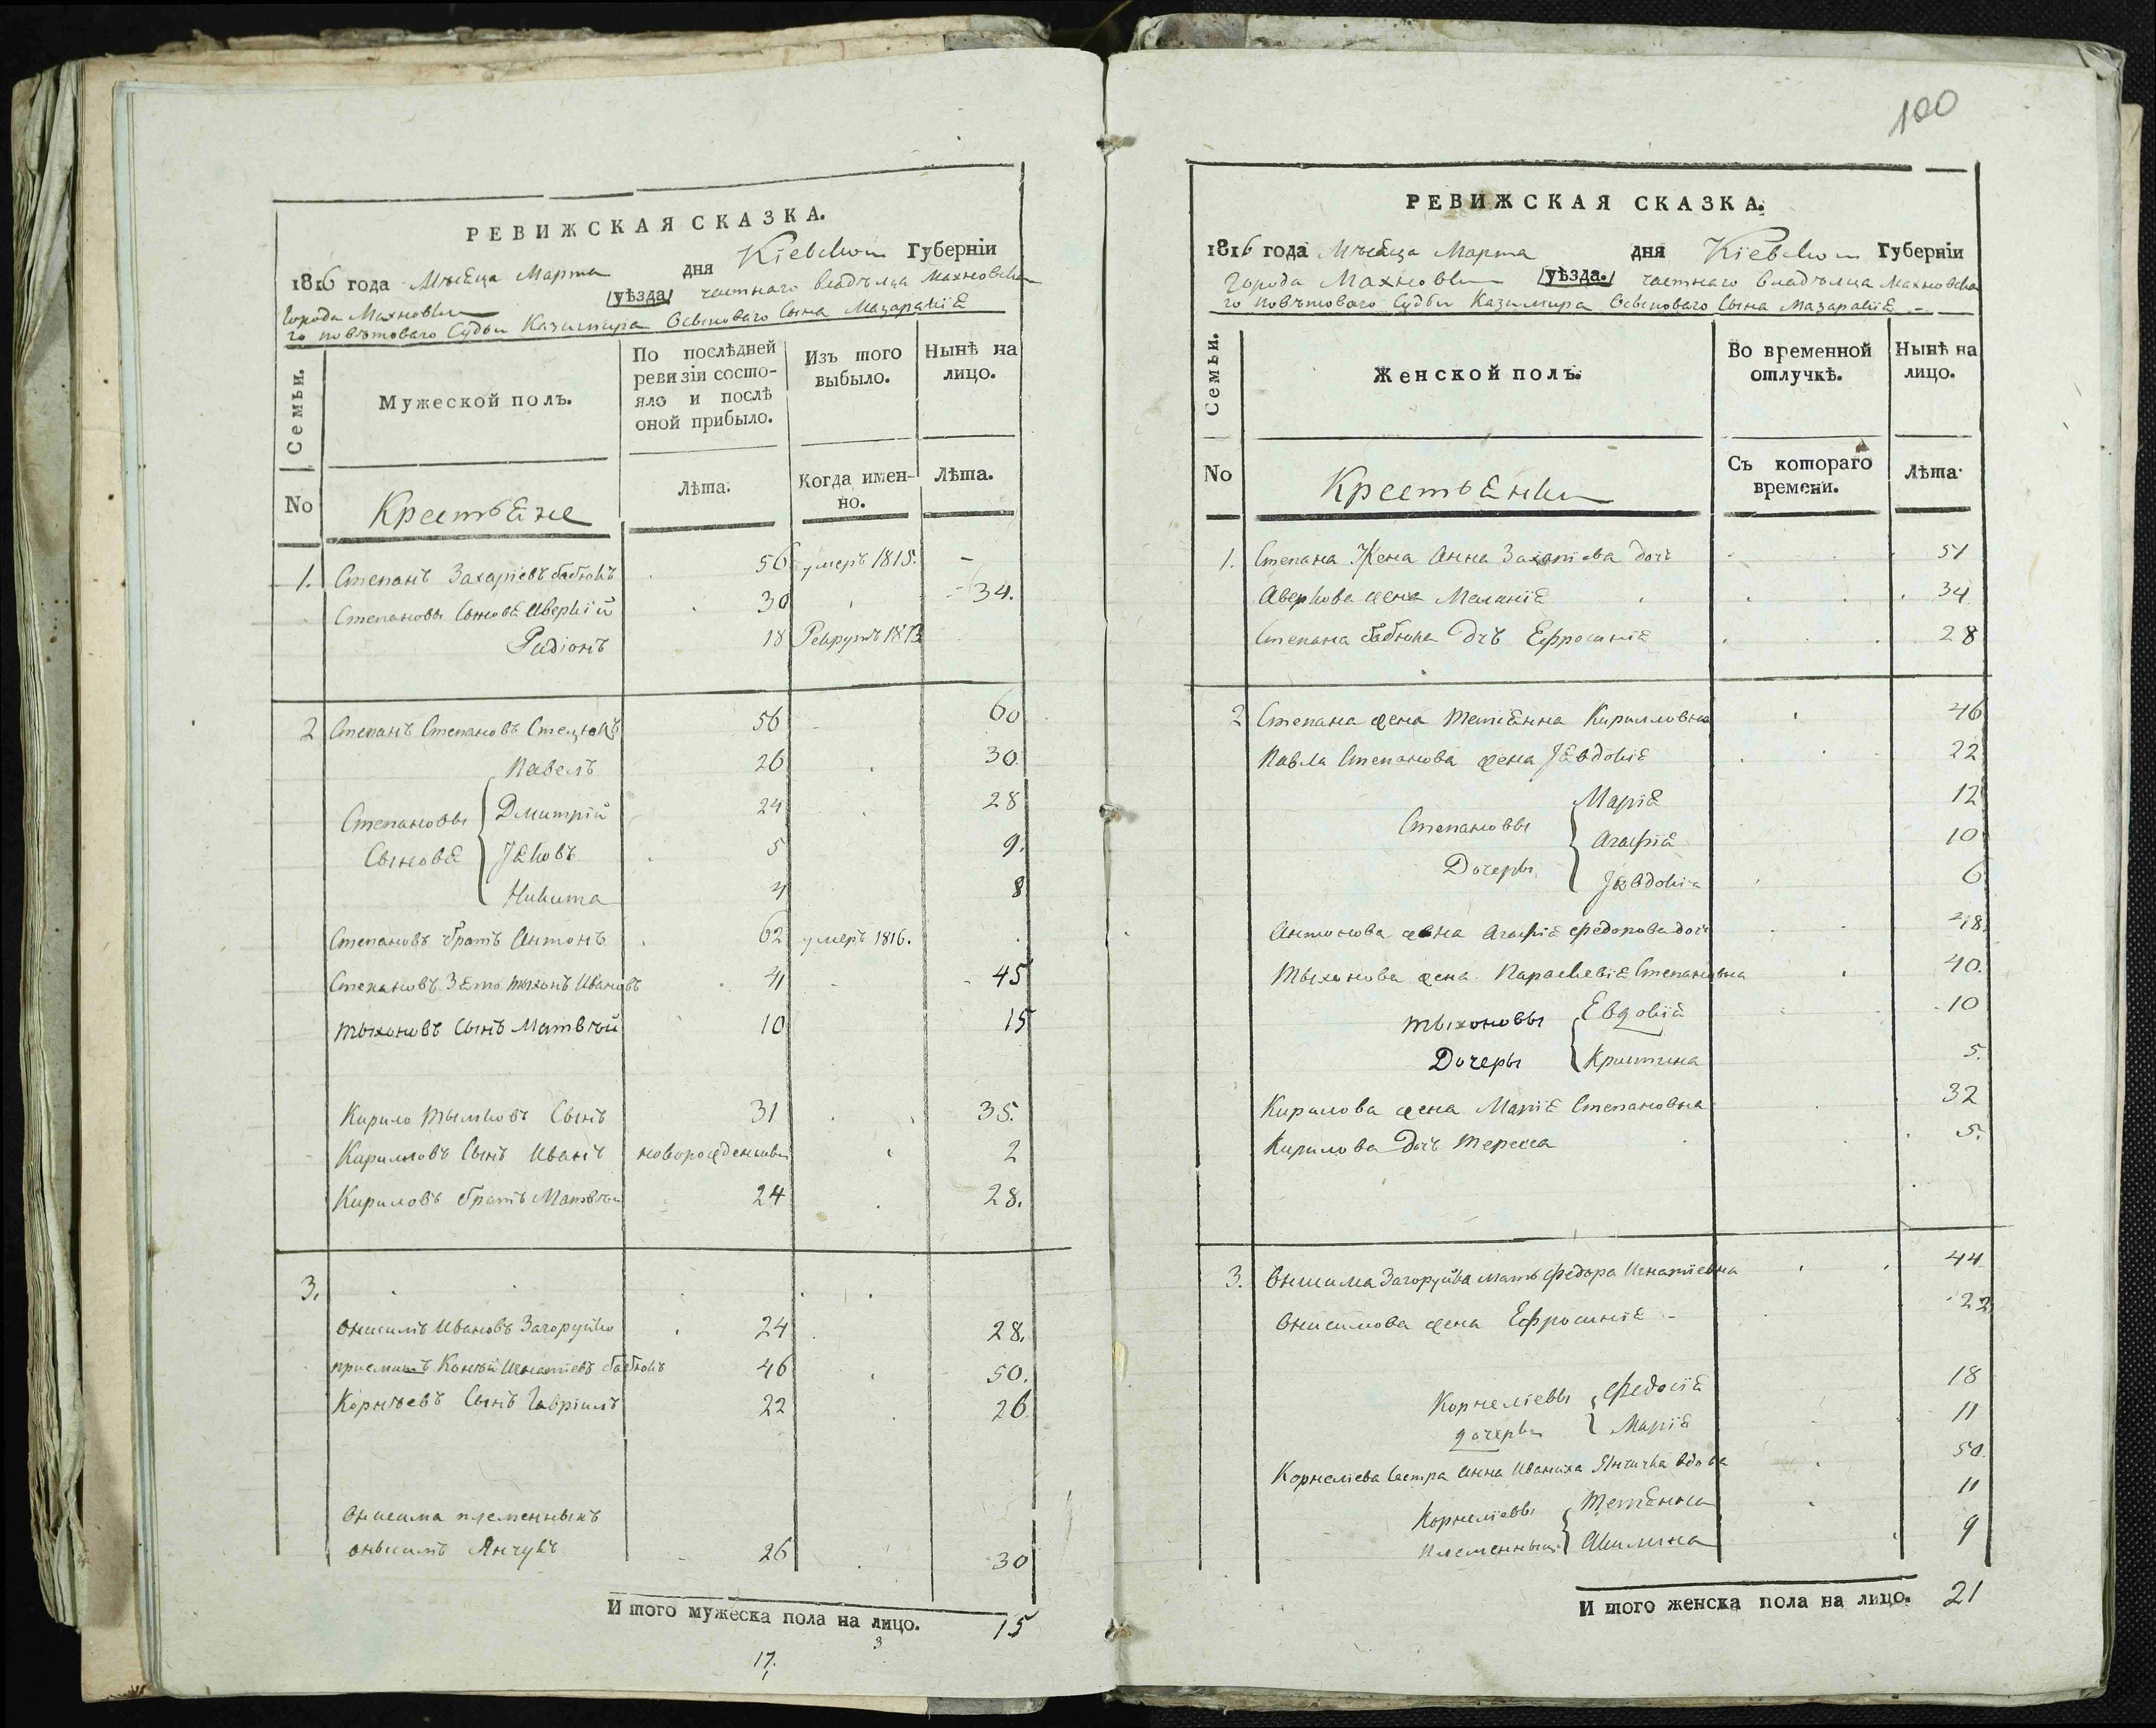 РЕВИЖСКАЯ СКАЗКА.
1816 года Мѣсяца Марта дня Кіевской Губерніи
Города Махновки уѣзда частнаго владѣльца Махновска
го повѣтоваго Судьи Казимира Осьпового Сына Мазаракія
Семьи. Мужеской полъ. По послѣдней ревизіи состояло и послѣ оной прибыло. Изъ того выбыло. Нынѣ на лицо.
No Крестьяне Лѣта. Когда именно. Лѣта.
1. Степанъ Захаріевъ бабюкъ 56 умеръ 1815. –
Степановы Сыновя Аверкій 30 34.
Радіонъ 18 Рекрутъ 1813
2 Степанъ Степановъ Стецюкъ 56 60
Павелъ 26 30
Степановы Дмитрій 24 28
Сыновя Јяковъ 5 9.
Никита 4 8
Степановъ братъ Антонъ 62 умеръ 1816.
Степановъ Зято тыхонъ Ивановъ 41 45
тыхоновъ Сынъ Матвѣй 10 15
Кирило тымковъ Сынъ 31 35.
Кириловъ Сынъ Иванъ новорожденный 2
Кириловъ братъ Матвѣй 24 28.
3.
Онисимъ Ивановъ Загоруйко 24 28.
Игнатіевъ бабюкъ 46 50.
Корнѣевъ Сынъ Гавріилъ 22 26.
Онисима племенныкъ
Онысимъ Янчукъ 26 30
Итого мужеска пола на лицо. 15
3
17.
100
РЕВИЖСКАЯ СКАЗКА.
1816 года Мѣсяца Марта дня Кіевской Губерніи
Города Махновки уѣзда. частнаго владѣльца Махновска
го повѣтоваго Судьи Казимира Осьпового Сына Мазаракія
Семьи. Женской полъ. Во временной отлучкѣ. Нынѣ на лицо.
No Крестьянки Съ котораго времени. Лѣта
1. Степана Жена Анна дочь 51
Аверкова жена Меланія 34
Степана бабюка дчъ Ефросинія 28
2 Степана жена тетіянна Кирилловна 46
Павла Степанова жена Јявдокія 22
Марія 12
Степановы Агафія 10
Дочеры Јявдокія 6
Антонова жена Агафія федорова дочь 48
тыхонова жена Параскевія Степановна 40.
тыхоновы Евдокія 10
Дочеры Кристина 5.
Кирилова жена Марія Степановна 32
Кирилова Дочь тересса 5.
3. Онисима Загоруйка мать федора Игнатіевна 44
Онисимова жена Ефросинія 22
Корнеліевы федосія 18
дочеры Марія 11
Корнеліева Сестра Анна Иваниха Янчучка вдова 50
Корнеліевы тетянна 11
племенныци Акилина 9
Итого женска пола на лицо. 21